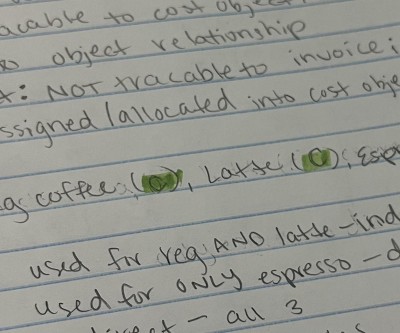 acable to cost object
object relationship
t: NOT tracable to invoice;
ssigned /allocated into cost obje
g coffee (a), Latte (c), Esp
used for reg, AND latte - ind
used for ONLY espresso - d
- all 3